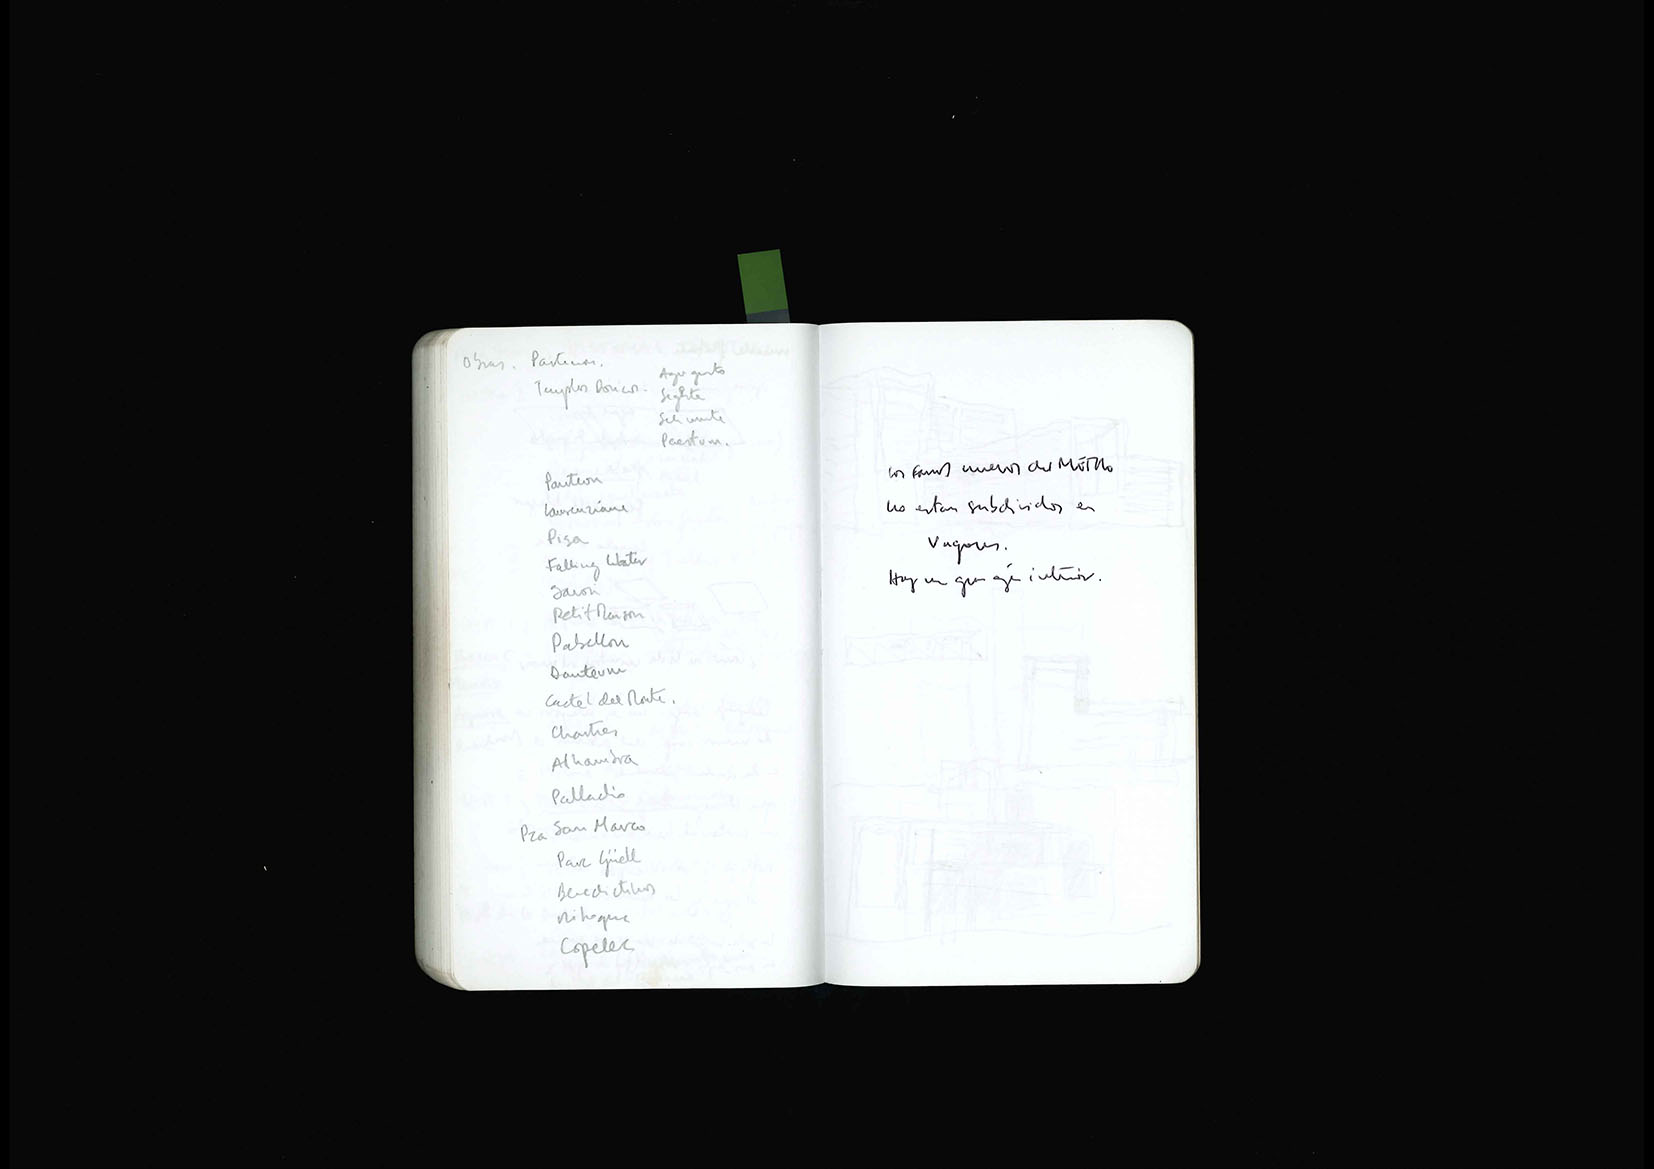 Obras. Partenon.
Templos Doricos. Agrigento
Segesta
Selinunte
Paestum.
Panteon
Laurenziana
Pisa
Falling Water
Petit Maison
Pabellon
Danteum
Castel del Monte.
Chartres
Alhambra
Palladio
Pza San Marco
Parc Güell
Benedictinos
Capelec
Los nuevos del METRO
no estan subdivididos en
Vagones.
Hay un gran eje interior.